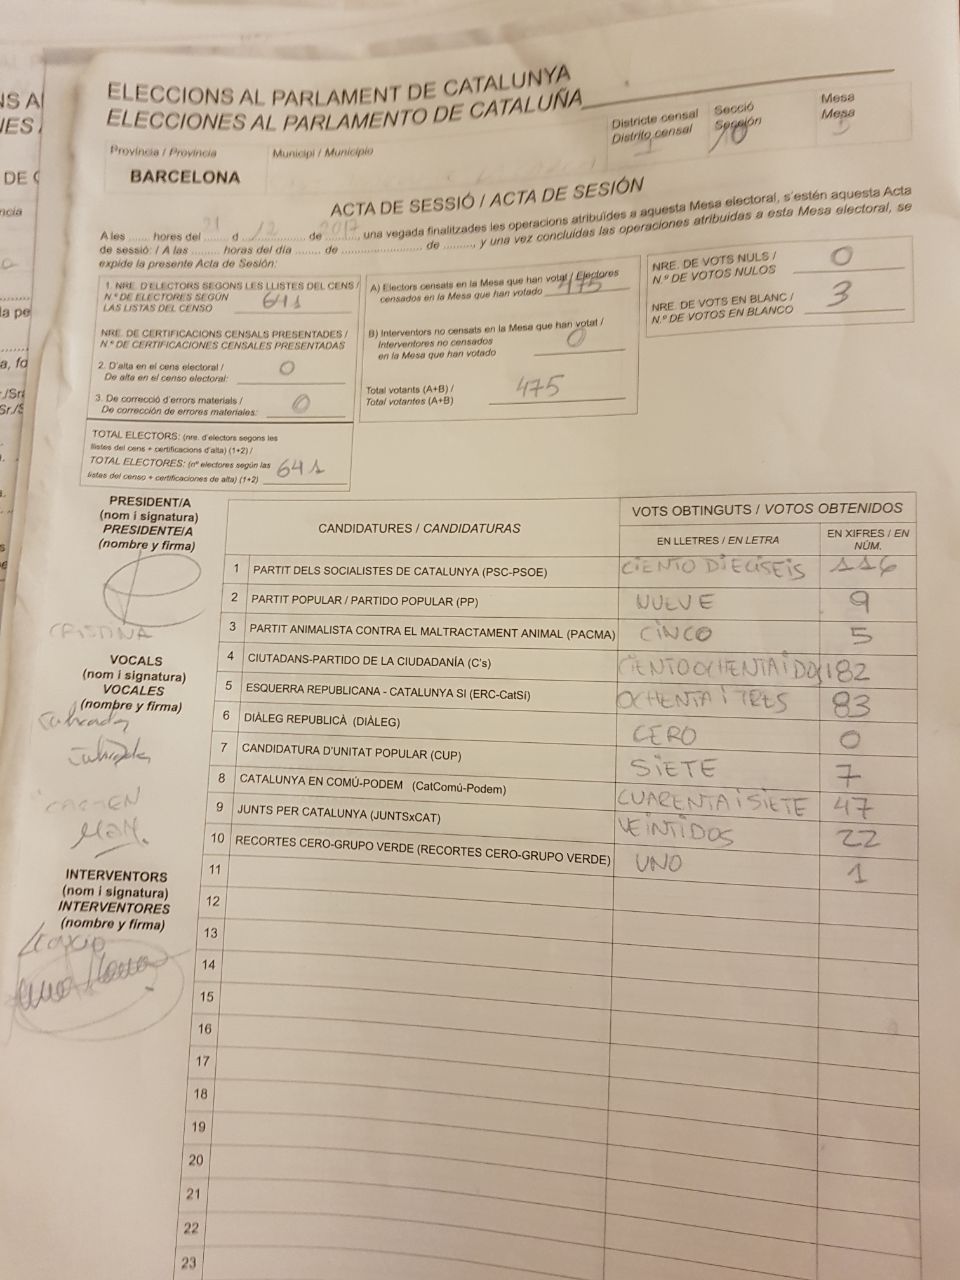 ELECCIONS AL PARLAMENT DE CATALUNYA
ELECCIONES AL PARLAMENTO DE CATALUÑA
Districte censal Secció Mesa
Distrito censal Sección Mesa
1 10
Província / Provincia Municipi / Municipio
BARCELONA
ACTA DE SESSIÓ / ACTA DE SESIÓN
A les ...... hores del 21 d 12 de 2017, una vegada finalitzades les operacions atribuïdes a aquesta Mesa electoral, s'estén aquesta Acta
de sessió: / A las ........ horas del día ....... de ..................... de ........, y una vez concluidas las operaciones atribuidas a esta Mesa electoral, se
expide la presente Acta de Sesión:
1. NRE. D'ELECTORS SEGONS LES LLISTES DEL CENS /
N.º DE ELECTORES SEGÚN
LAS LISTAS DEL CENSO 641
NRE. DE CERTIFICACIONS CENSALS PRESENTADES /
N.º DE CERTIFICACIONES CENSALES PRESENTADAS
2. D'alta en el cens electoral /
De alta en el censo electoral: 0
3. De correcció d'errors materials /
De corrección de errores materiales: 0
TOTAL ELECTORS: (nre. d'electors segons les
llistes del cens + certificacions d'alta) (1+2) /
TOTAL ELECTORES: (nº electores según las
listas del censo + certificaciones de alta) (1+2) 641
A) Electors censats en la Mesa que han votat / Electores
censados en la Mesa que han votado 475
B) Interventors no censats en la Mesa que han votat /
Interventores no censados
en la Mesa que han votado 0
Total votants (A+B) /
Total votantes (A+B) 475
NRE. DE VOTS NULS /
N.º DE VOTOS NULOS 0
NRE. DE VOTS EN BLANC /
N.º DE VOTOS EN BLANCO 3
PRESIDENT/A
(nom i signatura)
PRESIDENTE/A
(nombre y firma)
CRISTINA
VOCALS
(nom i signatura)
VOCALES
(nombre y firma)
CARMEN
INTERVENTORS
(nom i signatura)
INTERVENTORES
(nombre y firma)
CANDIDATURES / CANDIDATURAS VOTS OBTINGUTS / VOTOS OBTENIDOS
EN LLETRES / EN LETRA EN XIFRES / EN NÚM.
1 PARTIT DELS SOCIALISTES DE CATALUNYA (PSC-PSOE) CIENTO DIECISEIS 116
2 PARTIT POPULAR / PARTIDO POPULAR (PP) NUEVE 9
3 PARTIT ANIMALISTA CONTRA EL MALTRACTAMENT ANIMAL (PACMA) CINCO 5
4 CIUTADANS-PARTIDO DE LA CIUDADANÍA (C's) CIENTO OCHENTA i DOS 182
5 ESQUERRA REPUBLICANA - CATALUNYA SI (ERC-CatSí) OCHENTA i TRES 83
6 DIÀLEG REPUBLICÀ (DIÀLEG) CERO 0
7 CANDIDATURA D'UNITAT POPULAR (CUP) SIETE 7
8 CATALUNYA EN COMÚ-PODEM (CatComú-Podem) CUARENTA i SIETE 47
9 JUNTS PER CATALUNYA (JUNTSxCAT) VEINTIDOS 22
10 RECORTES CERO-GRUPO VERDE (RECORTES CERO-GRUPO VERDE) UNO 1
11
12
13
14
15
16
17
18
19
20
21
22
23